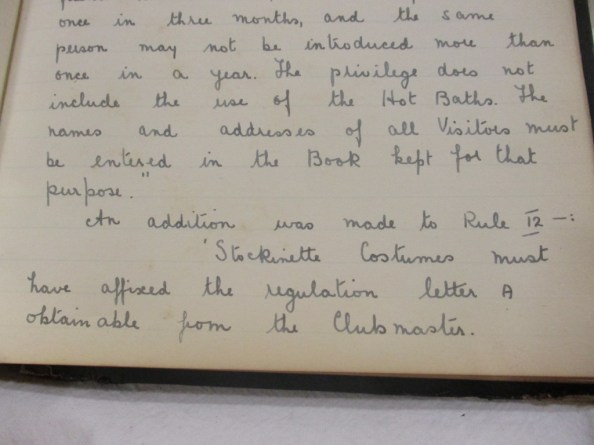 once in three months, and the same
person may not be introduced more than
once in a year. The privilege does not
include the use of the Hot Baths. The
names and addresses of all Visitors must
be entered in the Book kept for that
purpose."
An addition was made to Rule 12 -:
'Stockinette Costumes must
have affixed the regulation letter A
obtainable from the Clubmaster.